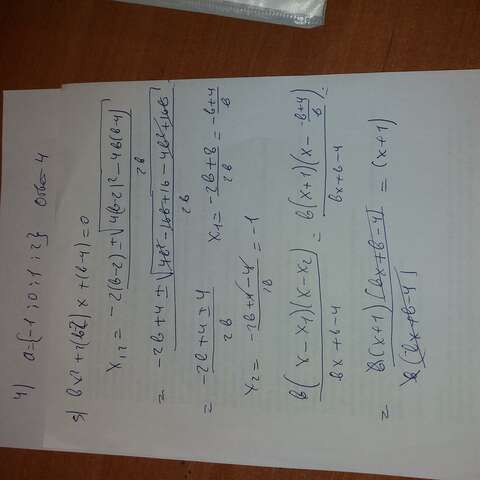 4) a={-1; 0; 1; 2} Ответ 4
5) bx² + 2(b-2)x + (b-4) = 0
x₁,₂ = (-2(b-2) ± √(4(b-2)² - 4b(b-4))) / 2b
= (-2b+4 ± √(4b² - 16b + 16 - 4b² + 16b)) / 2b
= (-2b+4 ± 4) / 2b x₁ = (-2b+8) / 2b = (-b+4) / b
x₂ = (-2b+4-4) / 2b = -1
b(x-x₁)(x-x₂) / (bx+b-4) = b(x+1)(x - (-b+4)/b) / (bx+b-4) =
= b(x+1)(bx+b-4) / b(bx+b-4) = (x+1)